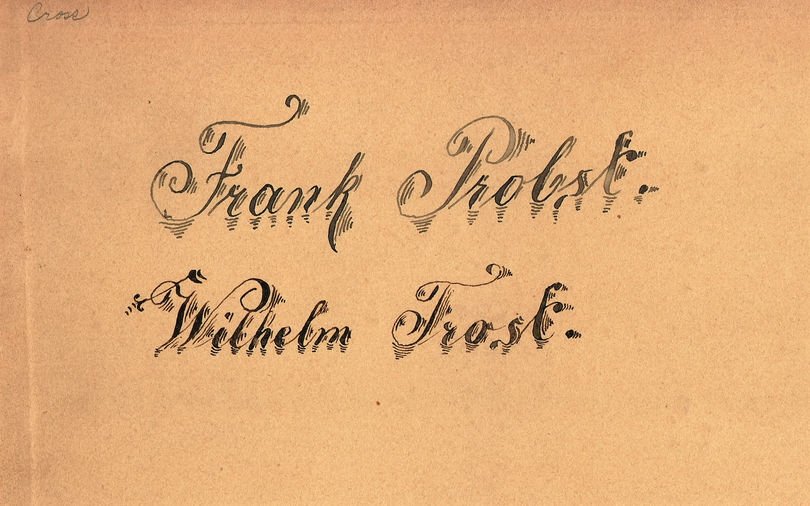 Cross
Frank Probst.
Wilhelm Trost.